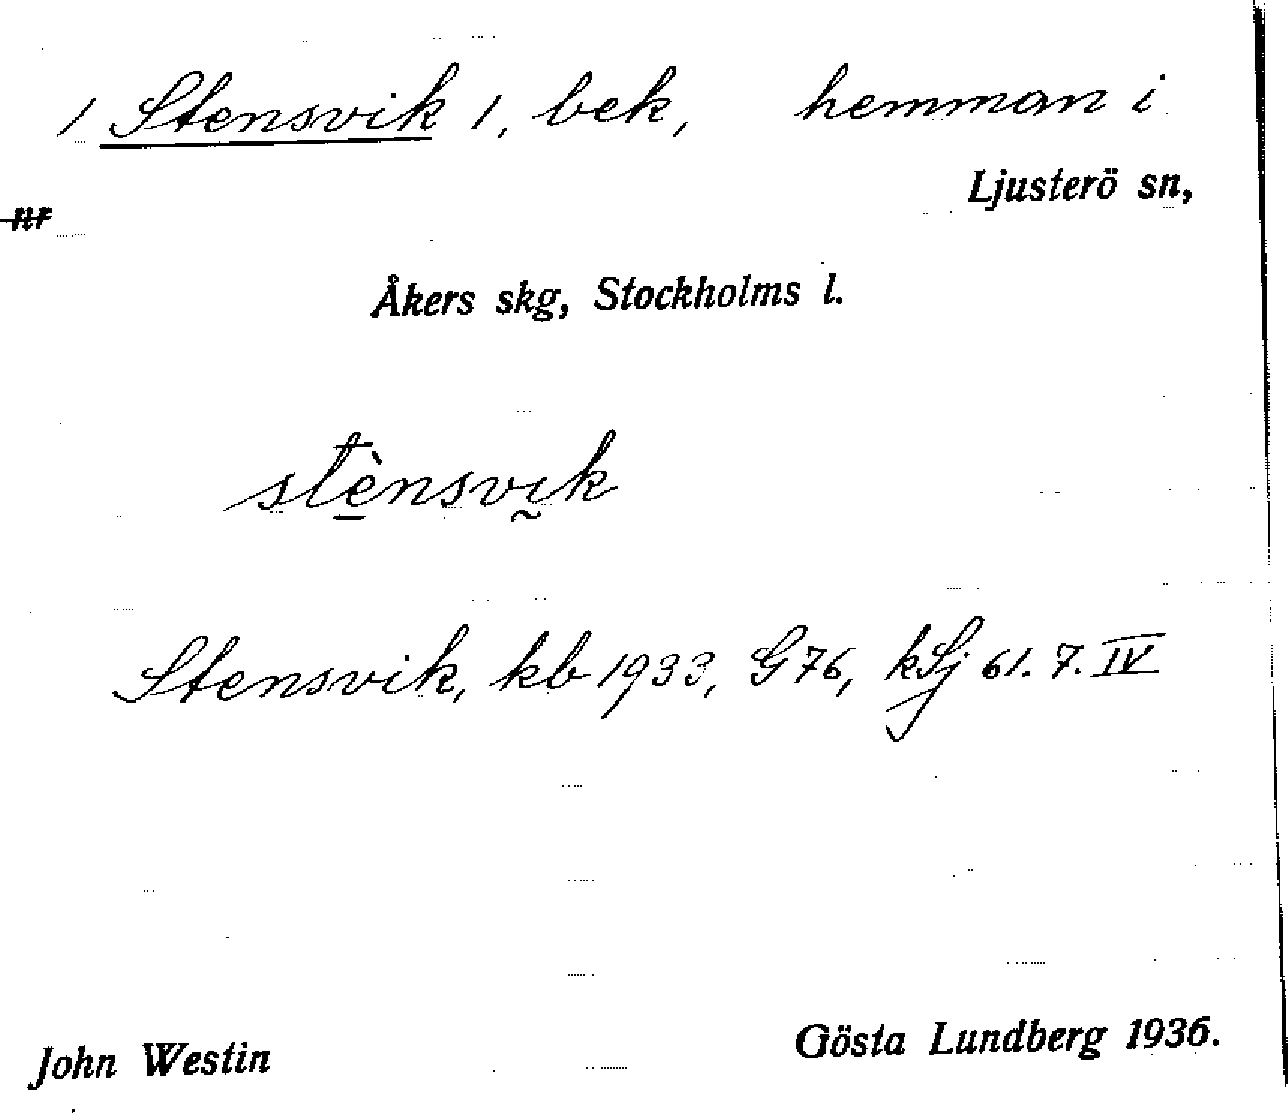 1 Stensvik 1, bek, hemman i
Ljusterö sn,
nr
Åkers skg, Stockholms l.
stè̱nsvḭk
Stensvik, kb 1933, G 76, kLj 61. 7. IV
John Westin Gösta Lundberg 1936.